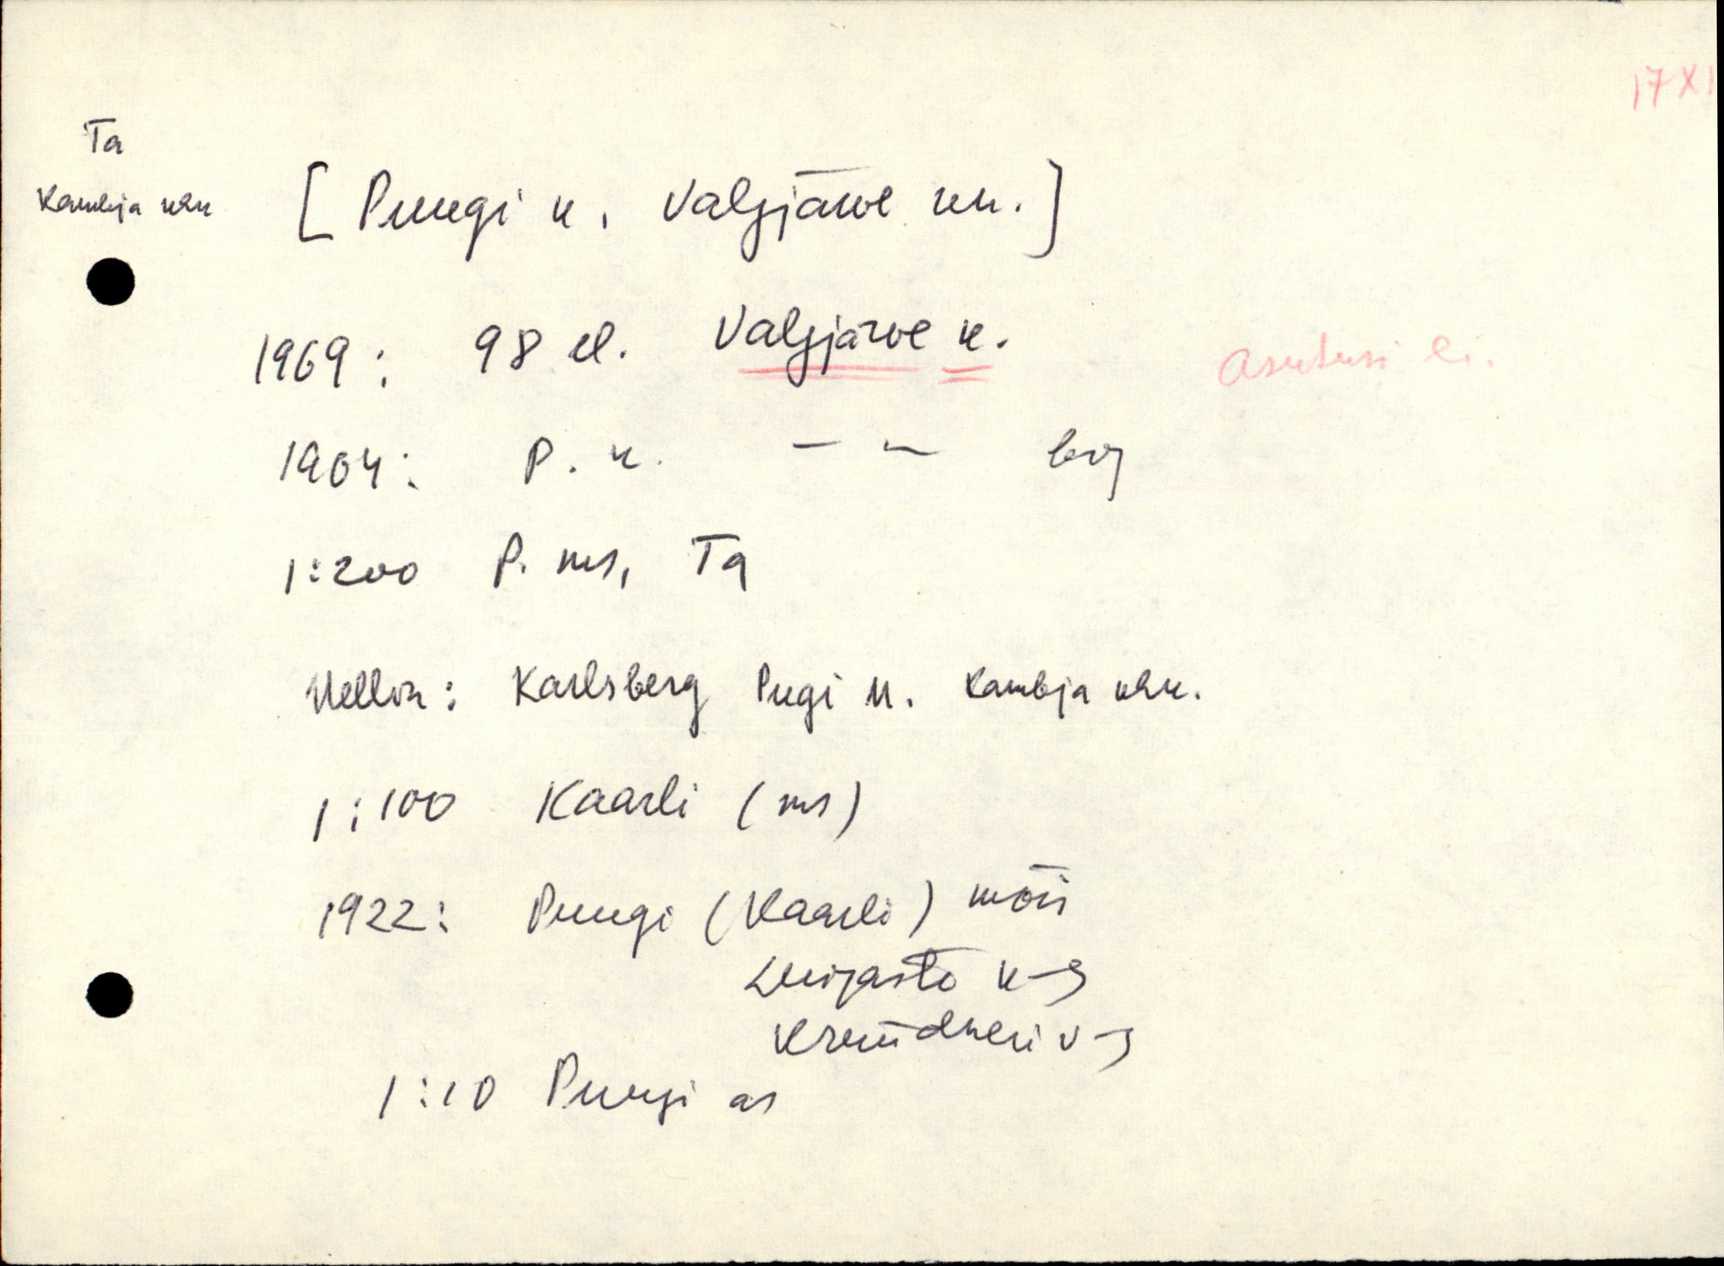 17 XI
Ta
Kambja khk
[ Puugi k. Valgjärve kn. ]
1969: 98 el. Valgjärve k.
asutusi ei.
1904: P. k. — —
1:200 P. ms, Ta
Mellin: Karlsberg Pugi M. Kambja khk.
1:100 Kaarli (ms)
1922: Puugi (Kaarli) mõis
k-s
v-s
1:10 Puugi as